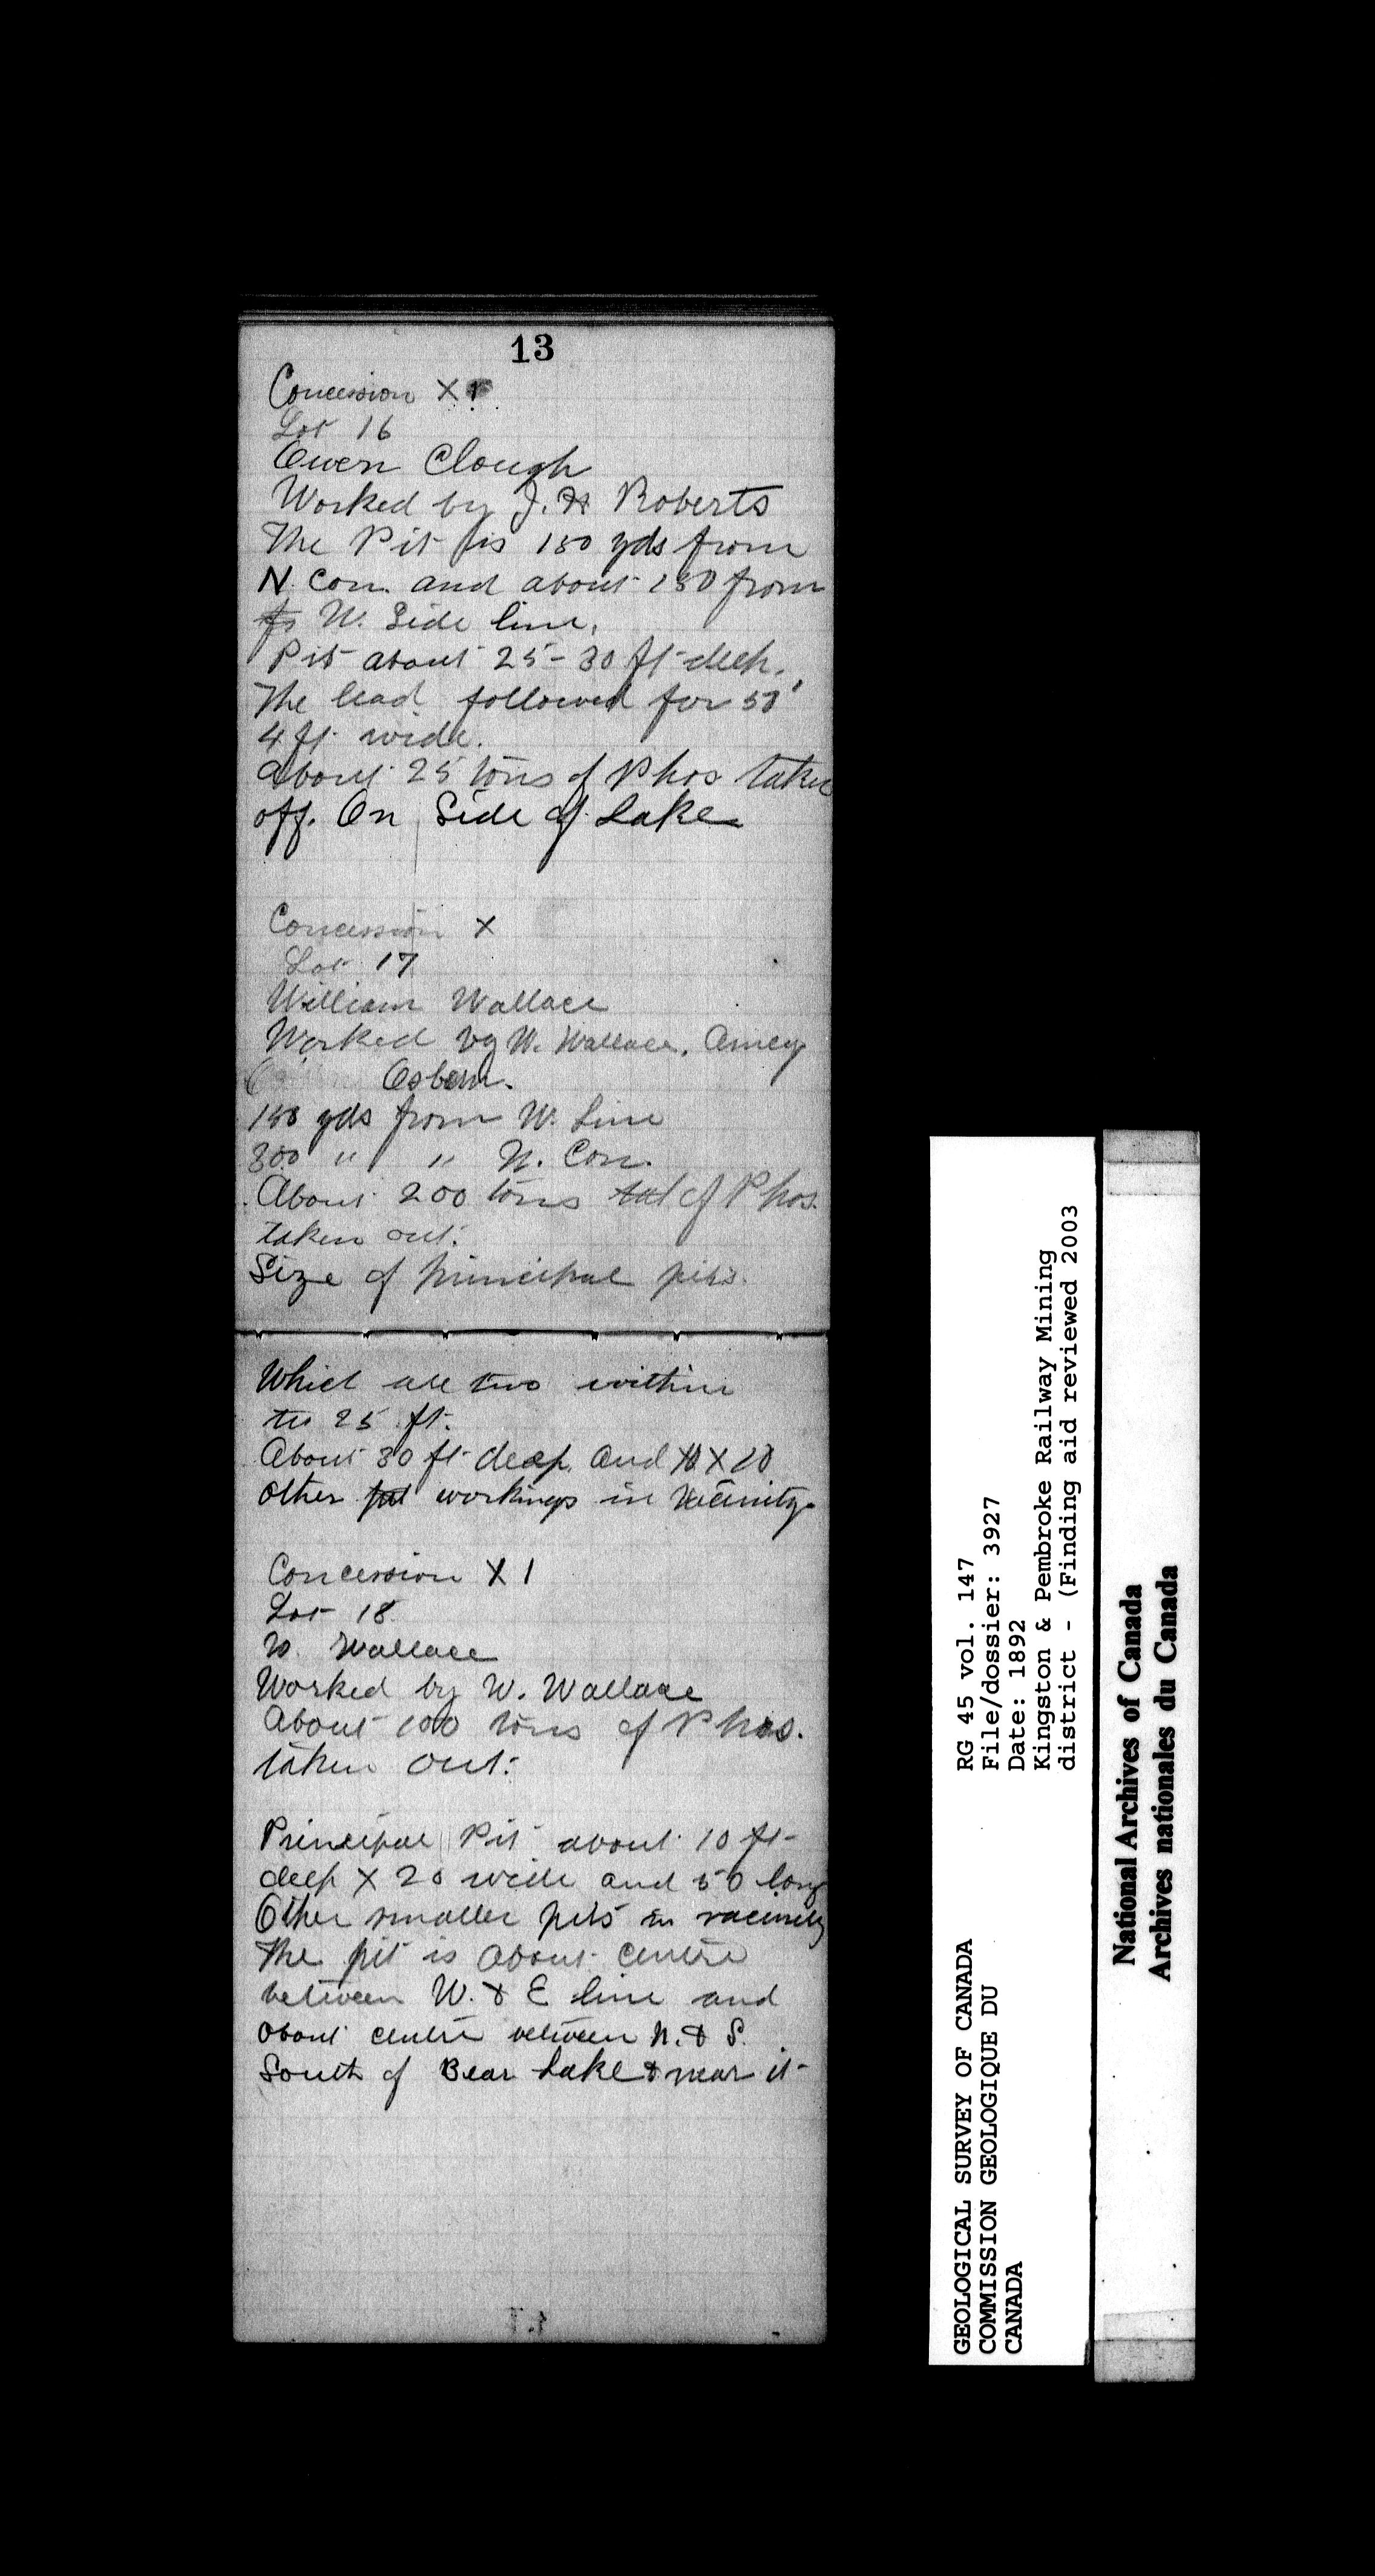 13
Concession X
Lot 16
Owen Clough
Worked by J. H Roberts
The Pit is 150 yds from
N. Con. and about 150 from
W. Side line.
Pit about 25-30 ft deep.
The lead followed for 50'
4 ft wide.
About 25 tons of Phos taken
off. On Side of Lake
Concession X
Lot 17
William Wallace
Worked by W. Wallace. Amey
Osborn.
150 yds from W. Line
300 " " N. Con.
About 200 tons of Phos.
taken out.
Size of principal pits.
Which are two within
25 ft.
About 30 ft deep and X 10
Other workings in vicinity.
Concession X1
Lot 18
W. Wallace
Worked by W. Wallace
About 100 tons of Phos.
taken out.
Principal Pit about 10 ft
deep X 20 wide and 50 long
Other smaller pits in vacinity
The pit is about centre
between W. & E line and
about centre between N. & S.
South of Bear Lake & near it
GEOLOGICAL SURVEY OF CANADA
COMMISSION GEOLOGIQUE DU
CANADA
RG 45 vol. 147
File/dossier: 3927
Date: 1892
Kingston & Pembroke Railway Mining
district - (Finding aid reviewed 2003
National Archives of Canada
Archives nationales du Canada